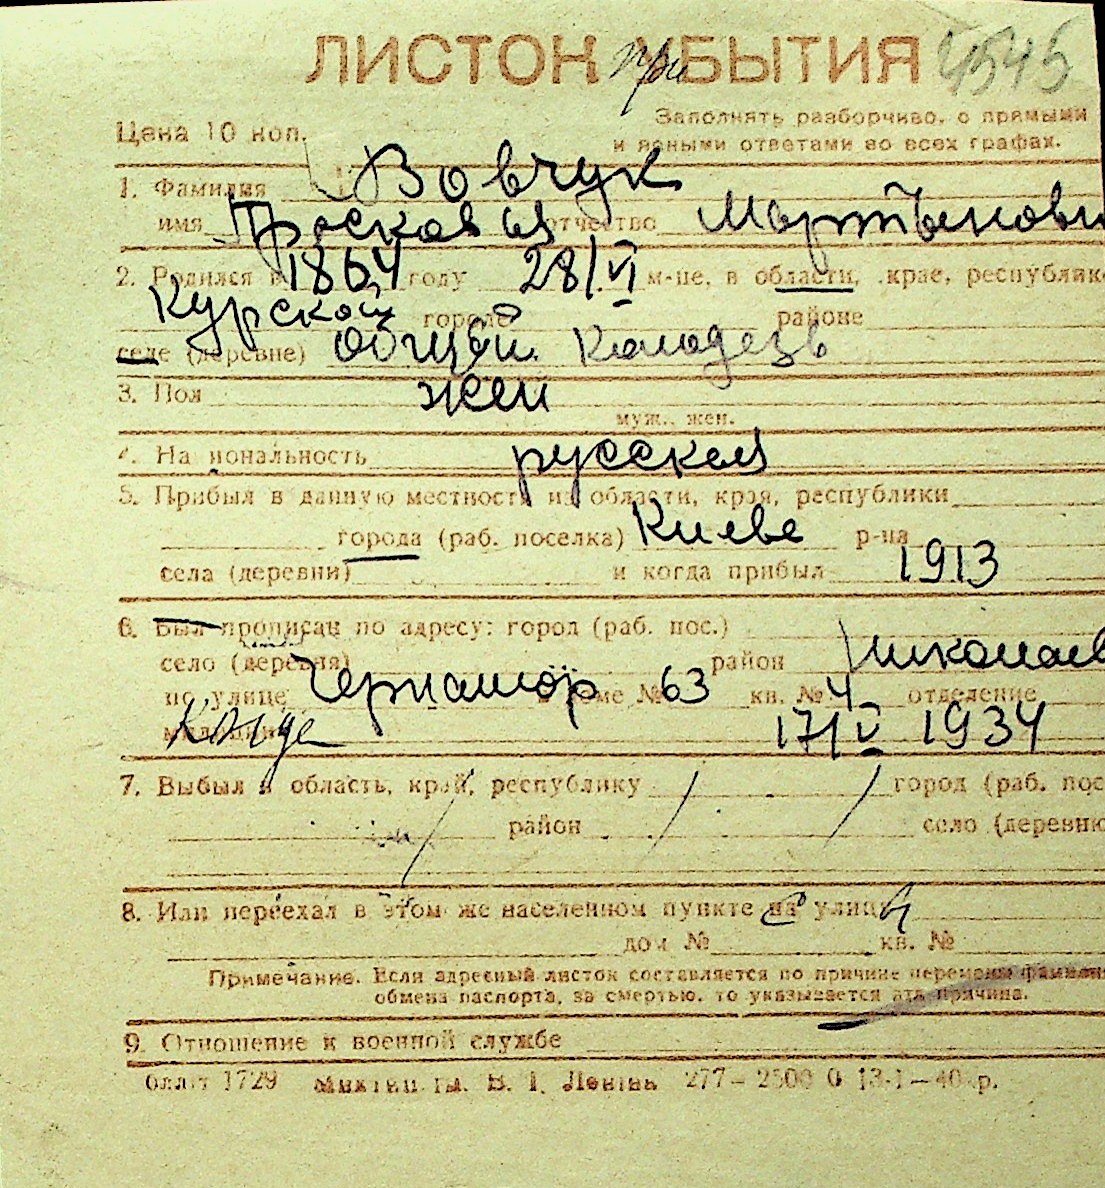 ЛИСТОК при УБЫТИЯ 4545
Цена 10 коп.
Заполнять разборчиво, с прямыми
и ясными ответами во всех графах.
1. Фамилия Вовчук
имя Проскавья отчество Мартынови
2. Родился в 1864 году 28/VI м-це, в области, крае, республике
Курской городе районе
селе (деревне) Общей Колодезь
3. Пол жен
муж., жен.
4. Национальность русская
5. Прибыл в данную местность из области, края, республики
города (раб. поселка) Киева р-на
села (деревни) и когда прибыл 1913
6. Был прописан по адресу: город (раб. пос.)
село (деревня) район Николаев
по улице Черномор в доме № 63 кв. № 4 отделение
милиции Когда 17/V 1934
7. Выбыл в область, край, республику город (раб. пос
район село (деревню
8. Или переехал в этом же населенном пункте на улицу
дом № кв. №
Примечание. Если адресный листок составляется по причине перемены фамилии
обмена паспорта, за смертью, то указывается эта причина.
9. Отношение к военной службе
1729 В. І. Леніна 277–2500 0 13-1–40 р.